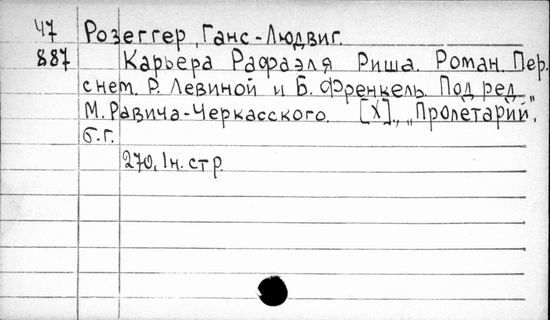 47 Розеггер, Ганс-Людвиг.
887 Карьера Рафаэля Риша. Роман. Пер.
с нем. Р. Левиной и Б. Френкель. Под ред.
М. Равича-Черкасского. [Х]., "Пролетарий",
б.г.
270, 1н. стр.